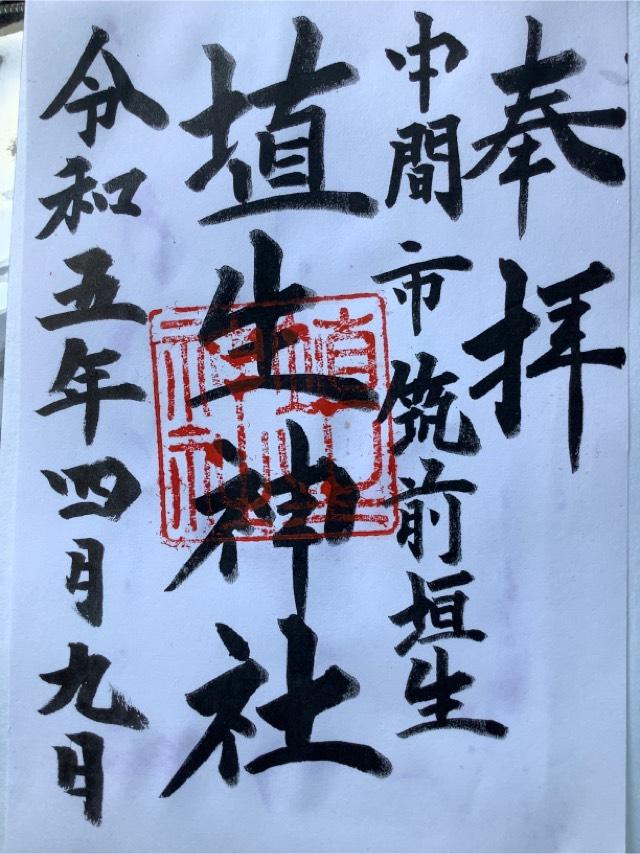 奉拝
中間市筑前垣生
埴生神社
令和五年四月九日
埴生神社